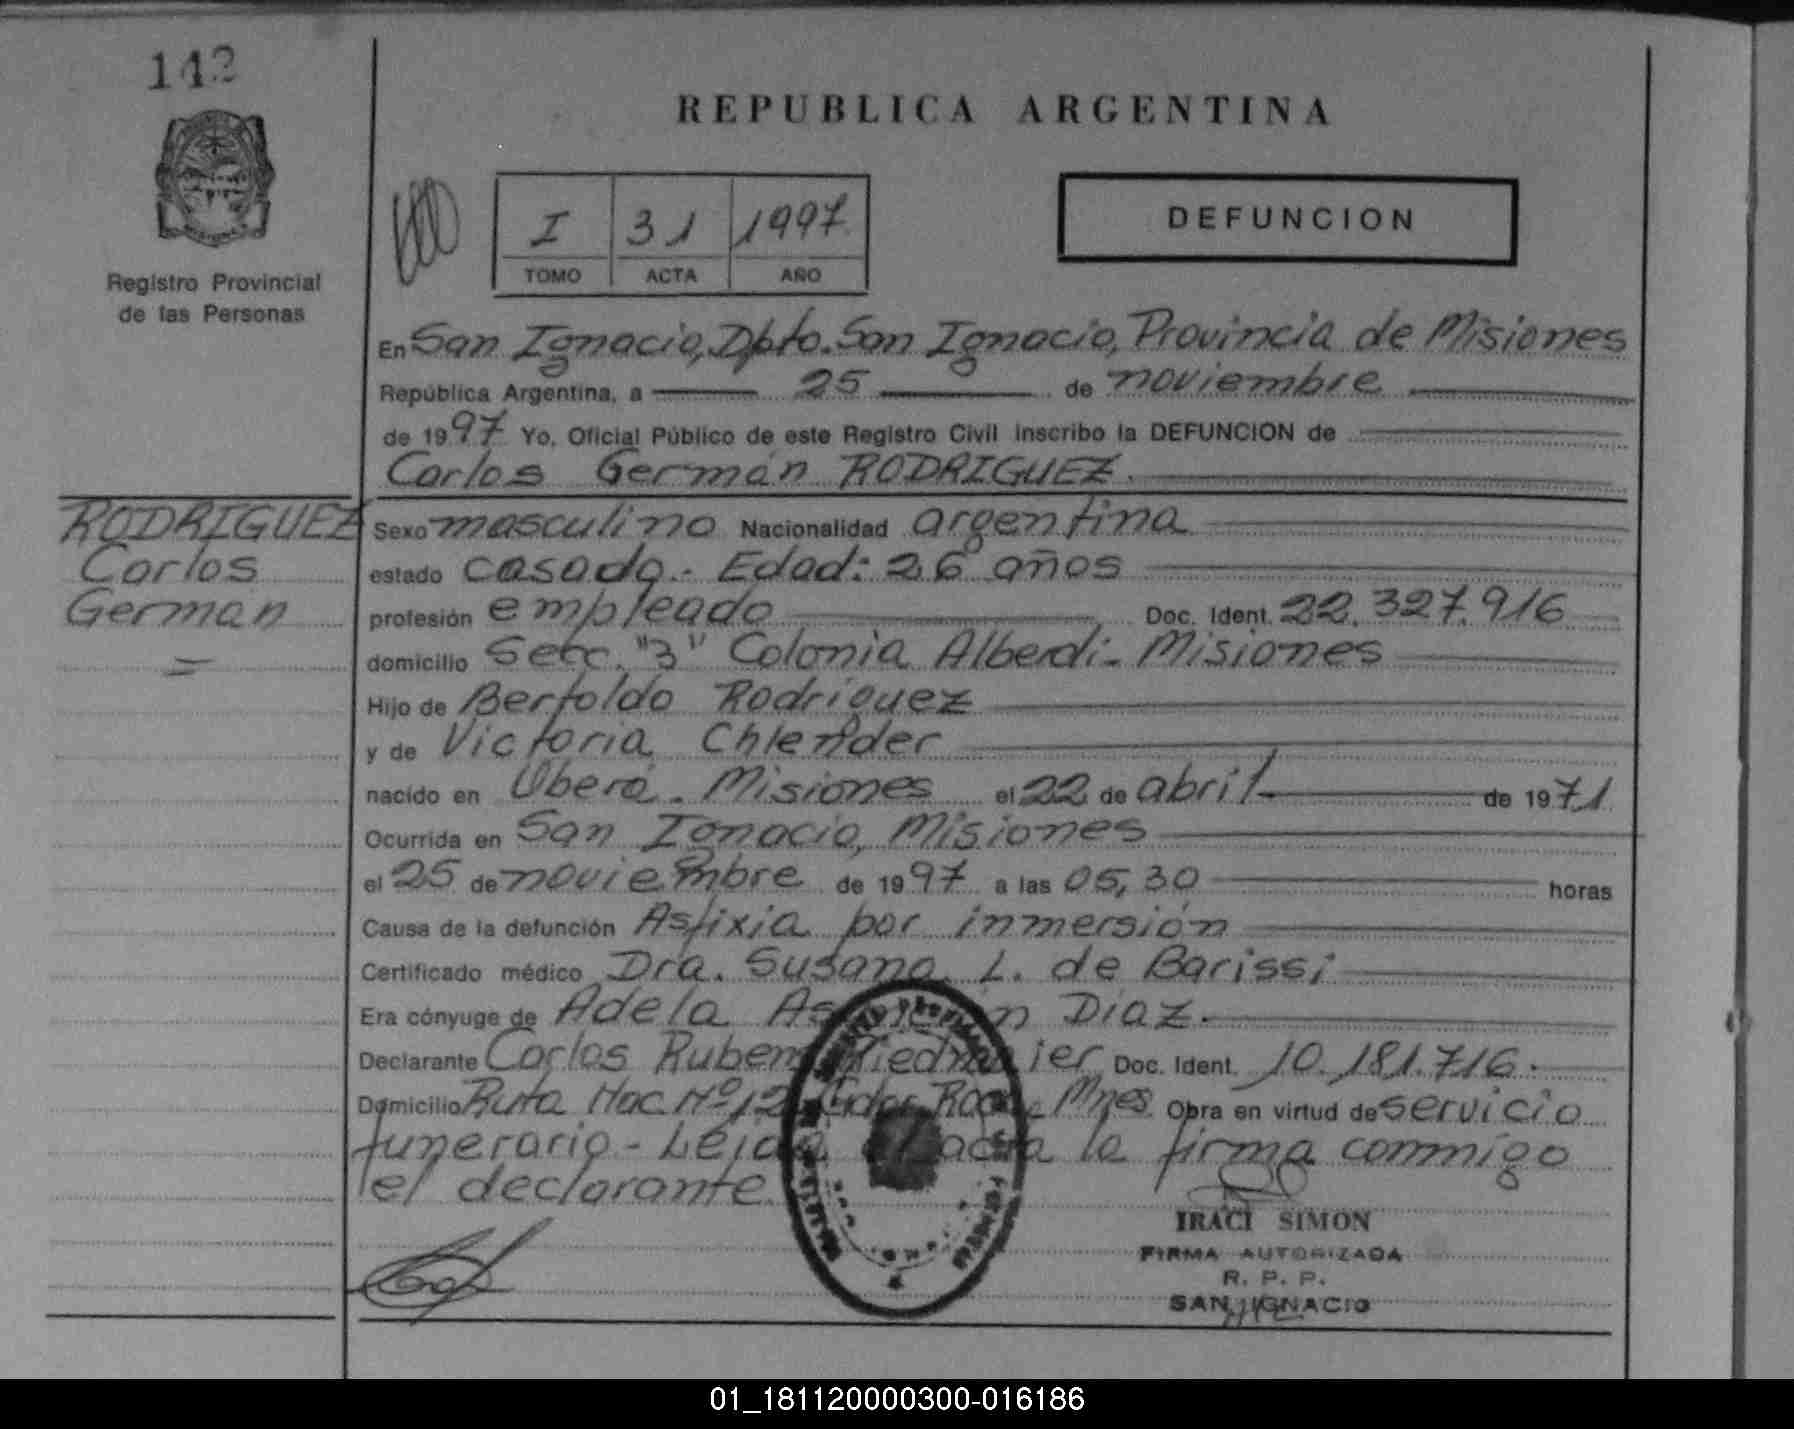 142
REPUBLICA ARGENTINA
I 31 1997
TOMO ACTA AÑO
DEFUNCION
Registro Provincial
de las Personas
En San Ignacio, Dpto. San Ignacio, Provincia de Misiones
República Argentina, a 25 de noviembre
de 1997 Yo, Oficial Público de este Registro Civil inscribo la DEFUNCION de
Carlos Germán RODRIGUEZ.
RODRIGUEZ
Carlos
Germán
Sexo masculino Nacionalidad argentina
estado casado.- Edad: 26 años
profesión empleado Doc. Ident. 22.327.916
domicilio Secc. "3" Colonia Alberdi - Misiones
Hijo de Bertoldo Rodriguez
y de Victoria Chlender
nacido en Oberá - Misiones el 22 de abril de 1971
Ocurrida en San Ignacio, Misiones
el 25 de noviembre de 1997 a las 05,30 horas
Causa de la defunción Asfixia por inmersión
Certificado médico Dra. Susana L. de Barissi
Era cónyuge de Adela Díaz.
Declarante Carlos Ruben Doc. Ident. 10.181.716.
Domicilio Ruta Nac. Nº 12 Mnes. Obra en virtud de servicio
funerario - Leída el acta la firma conmigo
el declarante.
IRACI SIMON
FIRMA AUTORIZADA
R. P. P.
SAN IGNACIO
01_181120000300-016186